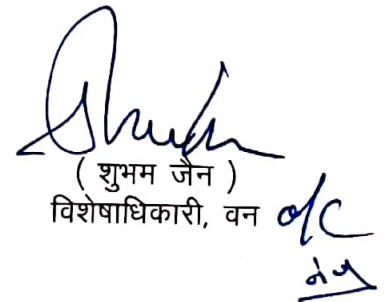 ( शुभम जैन )
विशेषाधिकारी, वन o/c